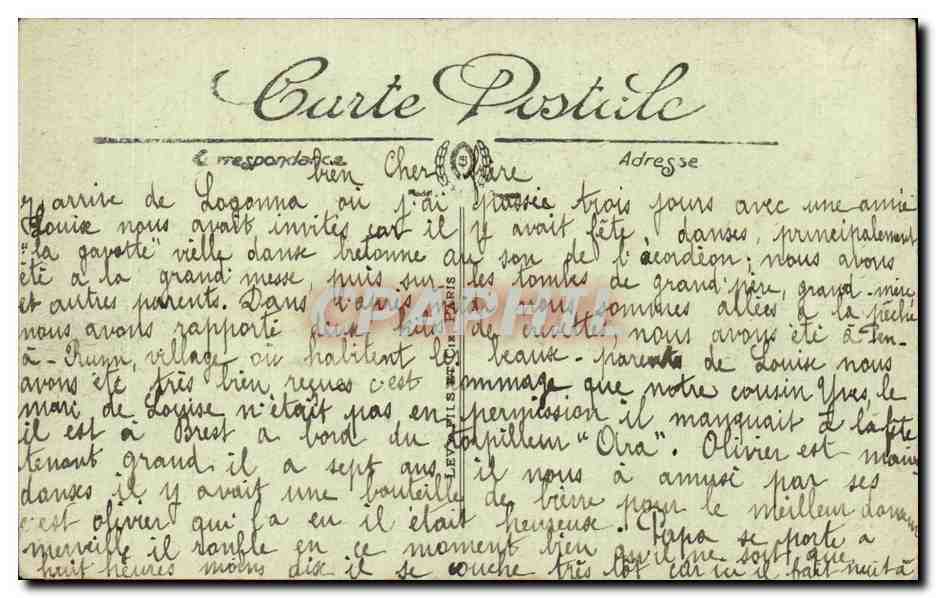 Carte Postale
Correspondance
Adresse
bien Cher frère
j'arrive de Logonna où j'ai passée trois jours avec une amie
Louise nous avait invités car il y avait fête, danses, principalement
"la gavotte" vielle danse bretonne au son de l'acordéon; nous avons
été à la grand'messe, puis sur les tombes de grand'père, grand-mère
et autres parents. Dans l'après midi nous sommes allées à la pêche
nous avons rapporté deux kilos de crevettes, nous avons été à Pen-
à-Runn, village où habitent les beaux-parents de Louise nous
avons été très bien reçues c'est dommage que notre cousin Yves, le
mari de Louise n'était pas en permission il manquait à la fête
il est à Brest a bord du torpilleur "Otra". Olivier est main
tenant grand il a sept ans il nous à amusé par ses
danses il y avait une bouteille de bierre pour le meilleur danseur
c'est olivier qui l'a eu il était heureuse. Papa se porte a
merveille il ronfle en ce moment bien qu'il ne soit que
huit heures moins dix il se couche très tôt car ici il fait nuit à
LEVY FILS ET Cie PARIS
CPAPHIL